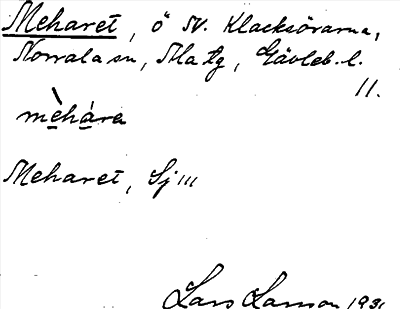 Meharet, ö N. Klacksörarna,
Norrala sn, Ma tg, Gävleb. l.
11.
mèhàra
Meharet, Sj III
Lars Larsson 1931